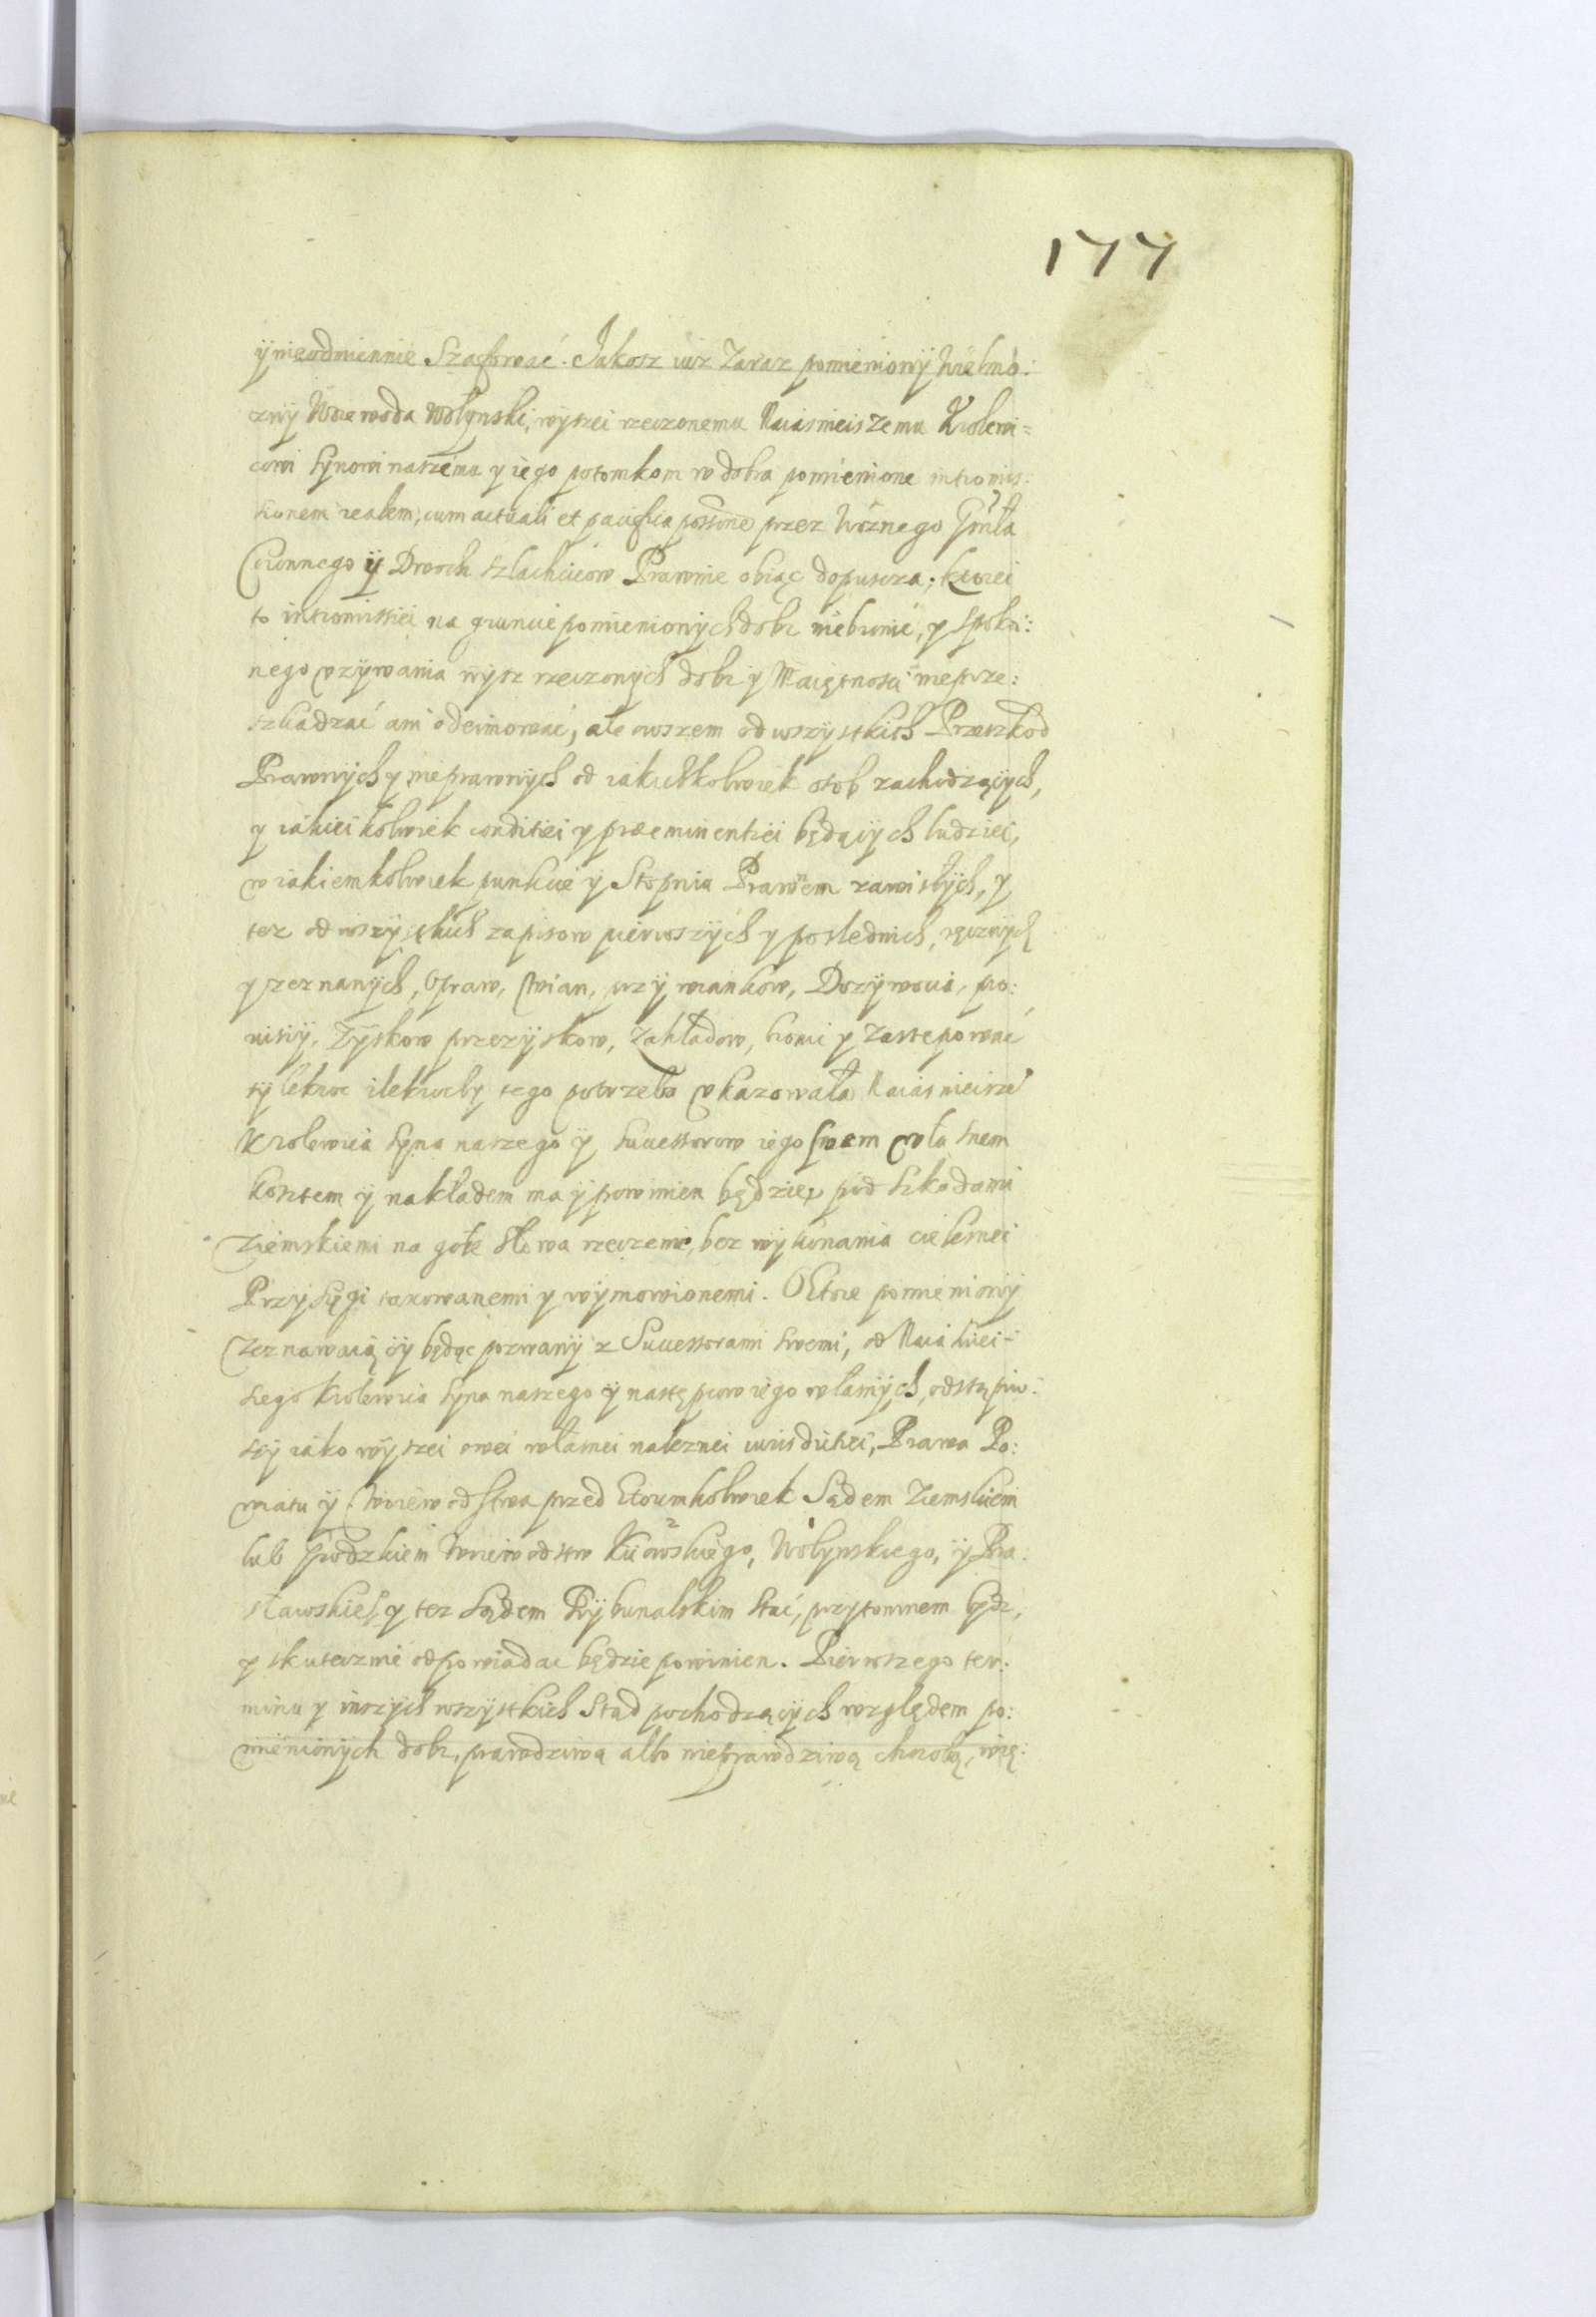 177
ÿ nieodmiennie Szafować. Jakosz iusz Zaraz pomieniony Wielmo:
zny Woiewoda Wołynski, wyszei rzeczonemu Naiasnieiszemu Krolewi=
cowi Synowi naszemu y iego potomkom w dobra pomienione intromis:
sionem realem, cum actuali et pacifica possone przez Woznego Gnrła
Coronnego ÿ Dwoch szlachcicow Prawnie obiąc dopuscza, ktorei
to intromissiei na gruncie pomienionych dobr niebronić, y spokoi:
nego vzywania wysz rzeczonych dobr y Maiętnosci nieprze:
szkadzać ani odeimować, ale owszem od wszystkich Przeszkod
Prawnych y nieprawnych od iakichkolwiek osob zachodzących,
y iakiei kolwiek conditiei y præeminentiei będących ludziei,
w iakiemkolwiek punkcie ÿ Stopniu Prawem zawisłych, y
tez od wszystkich zapisow pierwszych y poslednich, ręcznych
y zeznanych, Opraw, Wian, przywiankow, Dozywocia, pro:
uisiy, Zyskow przezyskow, Zakładow, bronić y zastępować
tylekroc ilekrocby tego potrzeba vkazowała Naiasnieisze°
Krolewica Syna naszego ÿ Successorow iego swem własnem
kosztem ÿ nakładem ma ÿ powinien będzie, pod szkodami
Ziemskiemi na gołe słowa rzeczenie, bez wykonania cielesnei
Przysięgi taxowanemi y wymowionemi. Oktore pomieniony
Zeznawaiący będąc pozwany z Successorami swemi, od Naiasniei-
szego Krolewica Syna naszego ÿ nastepcow iego własnych, odstąpiw:
szy iako wyszei swei własnei naleznei iurisdictiei, Prawa Po:
wiatu ÿ Woiewodstwa przed ktorimkolwiek Sądem Ziemskiem
lub Grodzkiem Woiewodstw Kiiowskiego, Wołynskiego, ÿ Bra:
sławskie° y tez Sądem Trybunalskim Stać, przytomnem bydz,
y skutecznie odpowiadac będzie powinien. Pierwszego ter:
minu y inszych wszystkich Stąd pochodzących względem po:
mienionych dobr, prawdziwą albo nieprawdziwą chorobą, wię: